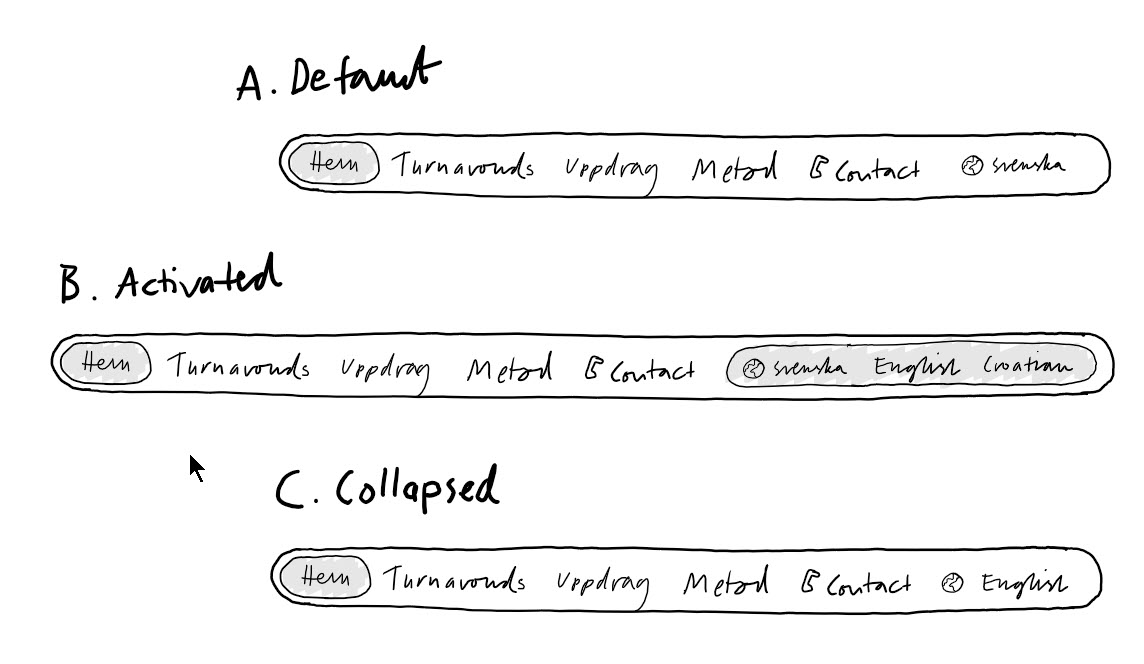 A. Default
Hem Turnarounds Uppdrag Metod Contact svenska
B. Activated
Hem Turnarounds Uppdrag Metod Contact svenska English Croatian
C. Collapsed
Hem Turnarounds Uppdrag Metod Contact English